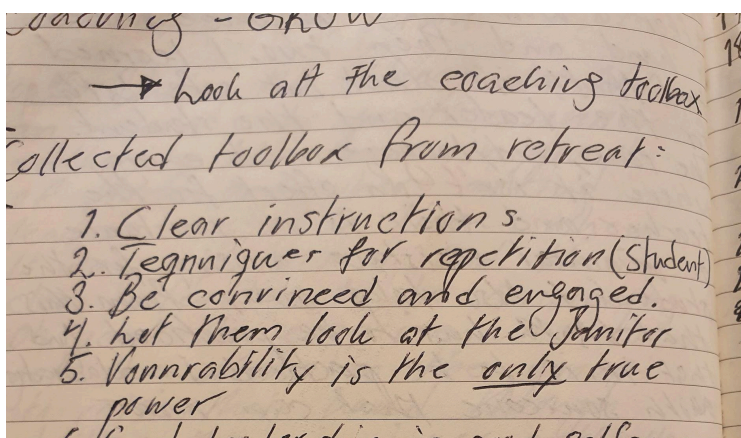 Coaching - GROW
→ Look att the coaching toolbox
Collected toolbox from retreat:
1. Clear instructions
2. Teqnniques for repetition (student)
3. Be convinced and engaged.
4. Let them look at the Janitor
5. Vonnrability is the only true
power